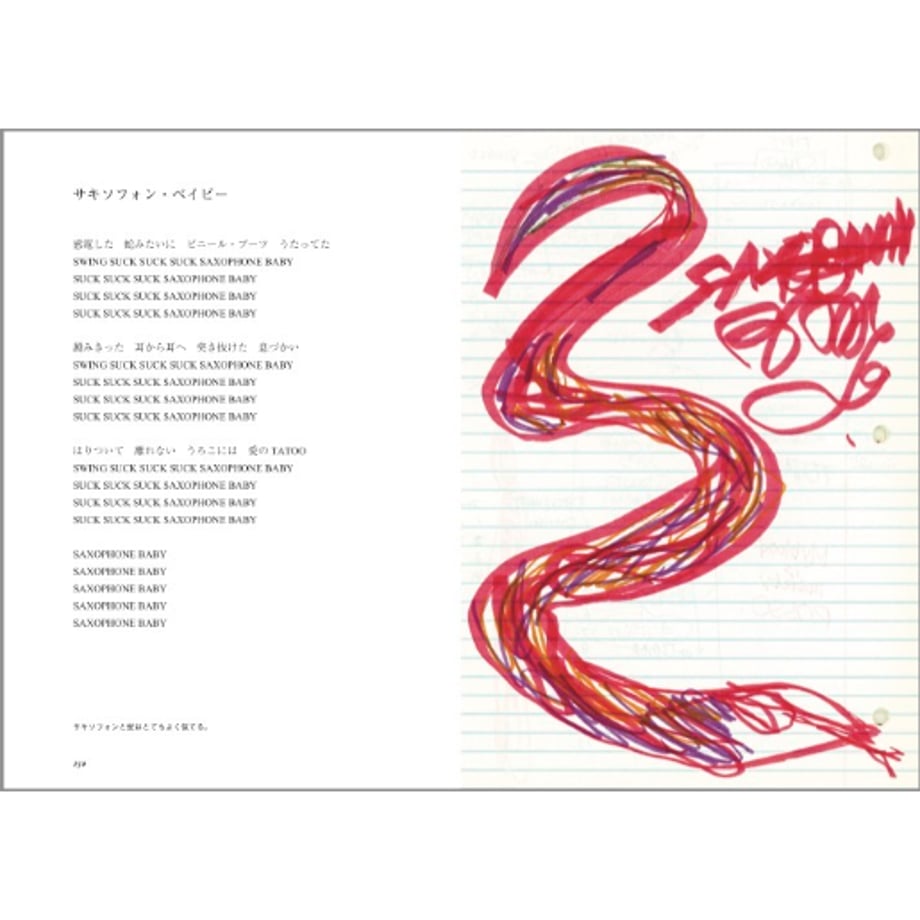 サキソフォン・ベイビー
邪険した　蛇みたいに　ビニール・ブーツ　うたってた
SWING SUCK SUCK SUCK SAXOPHONE BABY
SUCK SUCK SUCK SAXOPHONE BABY
SUCK SUCK SUCK SAXOPHONE BABY
SUCK SUCK SUCK SAXOPHONE BABY
みきった　耳から耳へ　突き抜けた　息づかい
SWING SUCK SUCK SUCK SAXOPHONE BABY
SUCK SUCK SUCK SAXOPHONE BABY
SUCK SUCK SUCK SAXOPHONE BABY
SUCK SUCK SUCK SAXOPHONE BABY
はりついて　離れない　うろこには　愛のTATOO
SWING SUCK SUCK SUCK SAXOPHONE BABY
SUCK SUCK SUCK SAXOPHONE BABY
SUCK SUCK SUCK SAXOPHONE BABY
SUCK SUCK SUCK SAXOPHONE BABY
SAXOPHONE BABY
SAXOPHONE BABY
SAXOPHONE BABY
SAXOPHONE BABY
SAXOPHONE BABY
サキソフォンと蛇はとてもよく似てる。